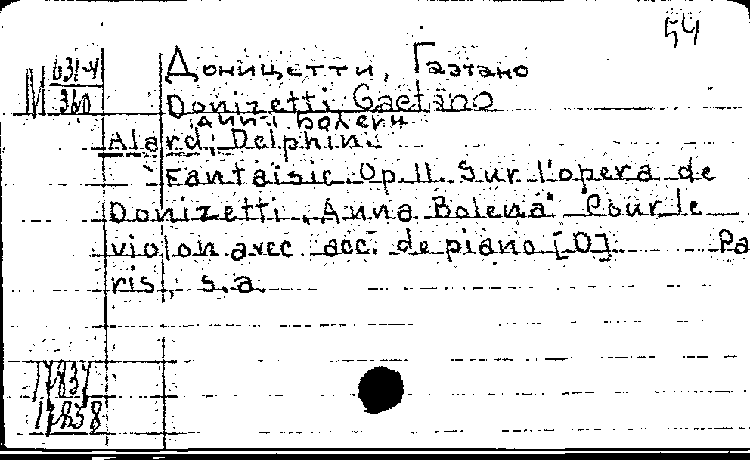 54
М 631-4
360
Доницетти, Гаэтано
Donizetti Gaetano
Анна Болейн
Alard, Delphin.
Fantaisie. Op. 11. Sur l'opera de
Donizetti „Anna Bolena" Pour le
violon avec acc. de piano [D] Pa
ris, s.a.
17837
17838